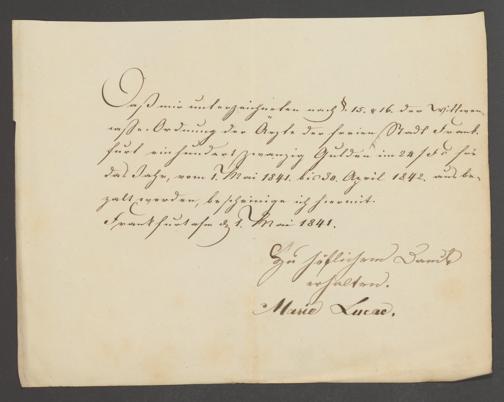 Daß mir unterzeichneten nach §. 15. & 16. der Wittwen-
casse-Ordnung der Ärzte der freien Stadt Frank-
furt einhundert zwanzig Gulden im 24 f Fß für
das Jahr, vom 1. Mai 1841. bis 30. April 1842. aus be-
zalt worden, bescheinige ich hiermit.
Frankfurt a/m d. 1. Mai 1841.
Zu höflichem Dank
erhalten.
Marie Lucae.